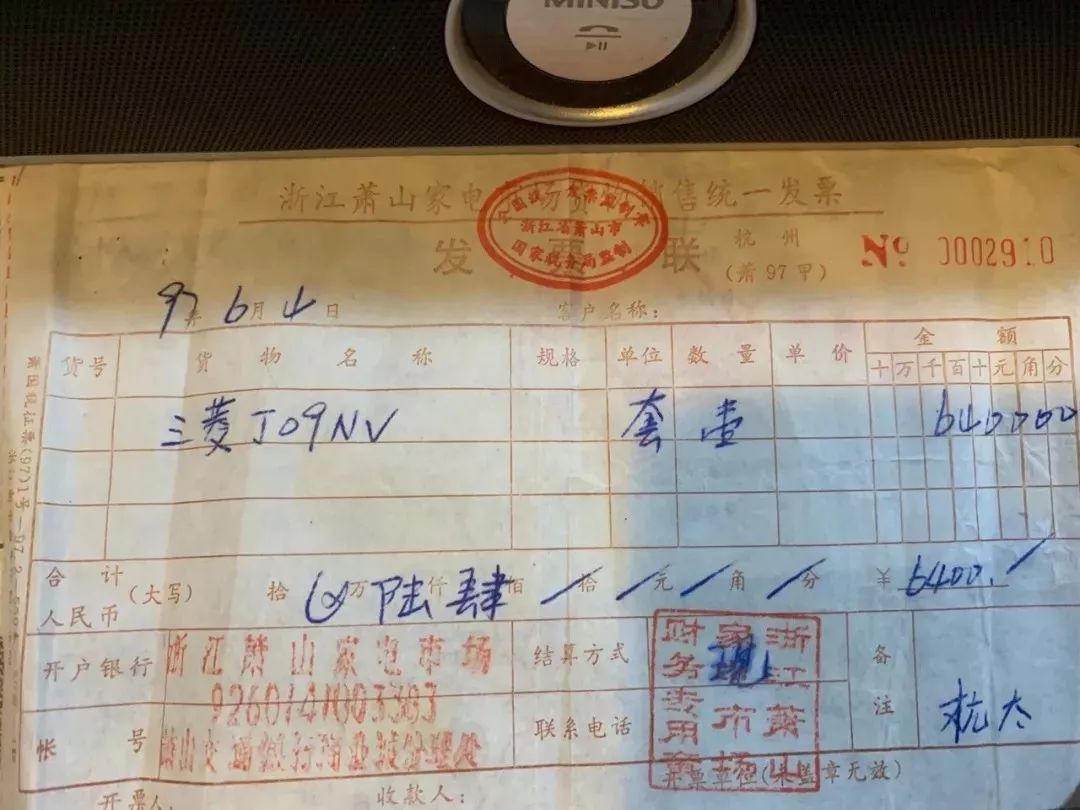 MINISO
浙江萧山家电市场货物销售统一发票
全国统一发票监制章
浙江省萧山市
国家税务局监制
发票联
杭州
(萧97甲)
№ 0002910
97年6月4日
客户名称:
货号 货物名称 规格 单位 数量 单价 金额
十万千百十元角分
三菱J09NV 套 壹 640000
合计
人民币
(大写) 拾 ⊗万陆仟肆佰/拾/元/角/分 ¥6400./
开户银行 浙江萧山家电市场
结算方式
备注
926014
帐号
联系电话
浙江萧山
家电市场
财务专用章
开票单位(未盖章无效)
开票人:
收款人: